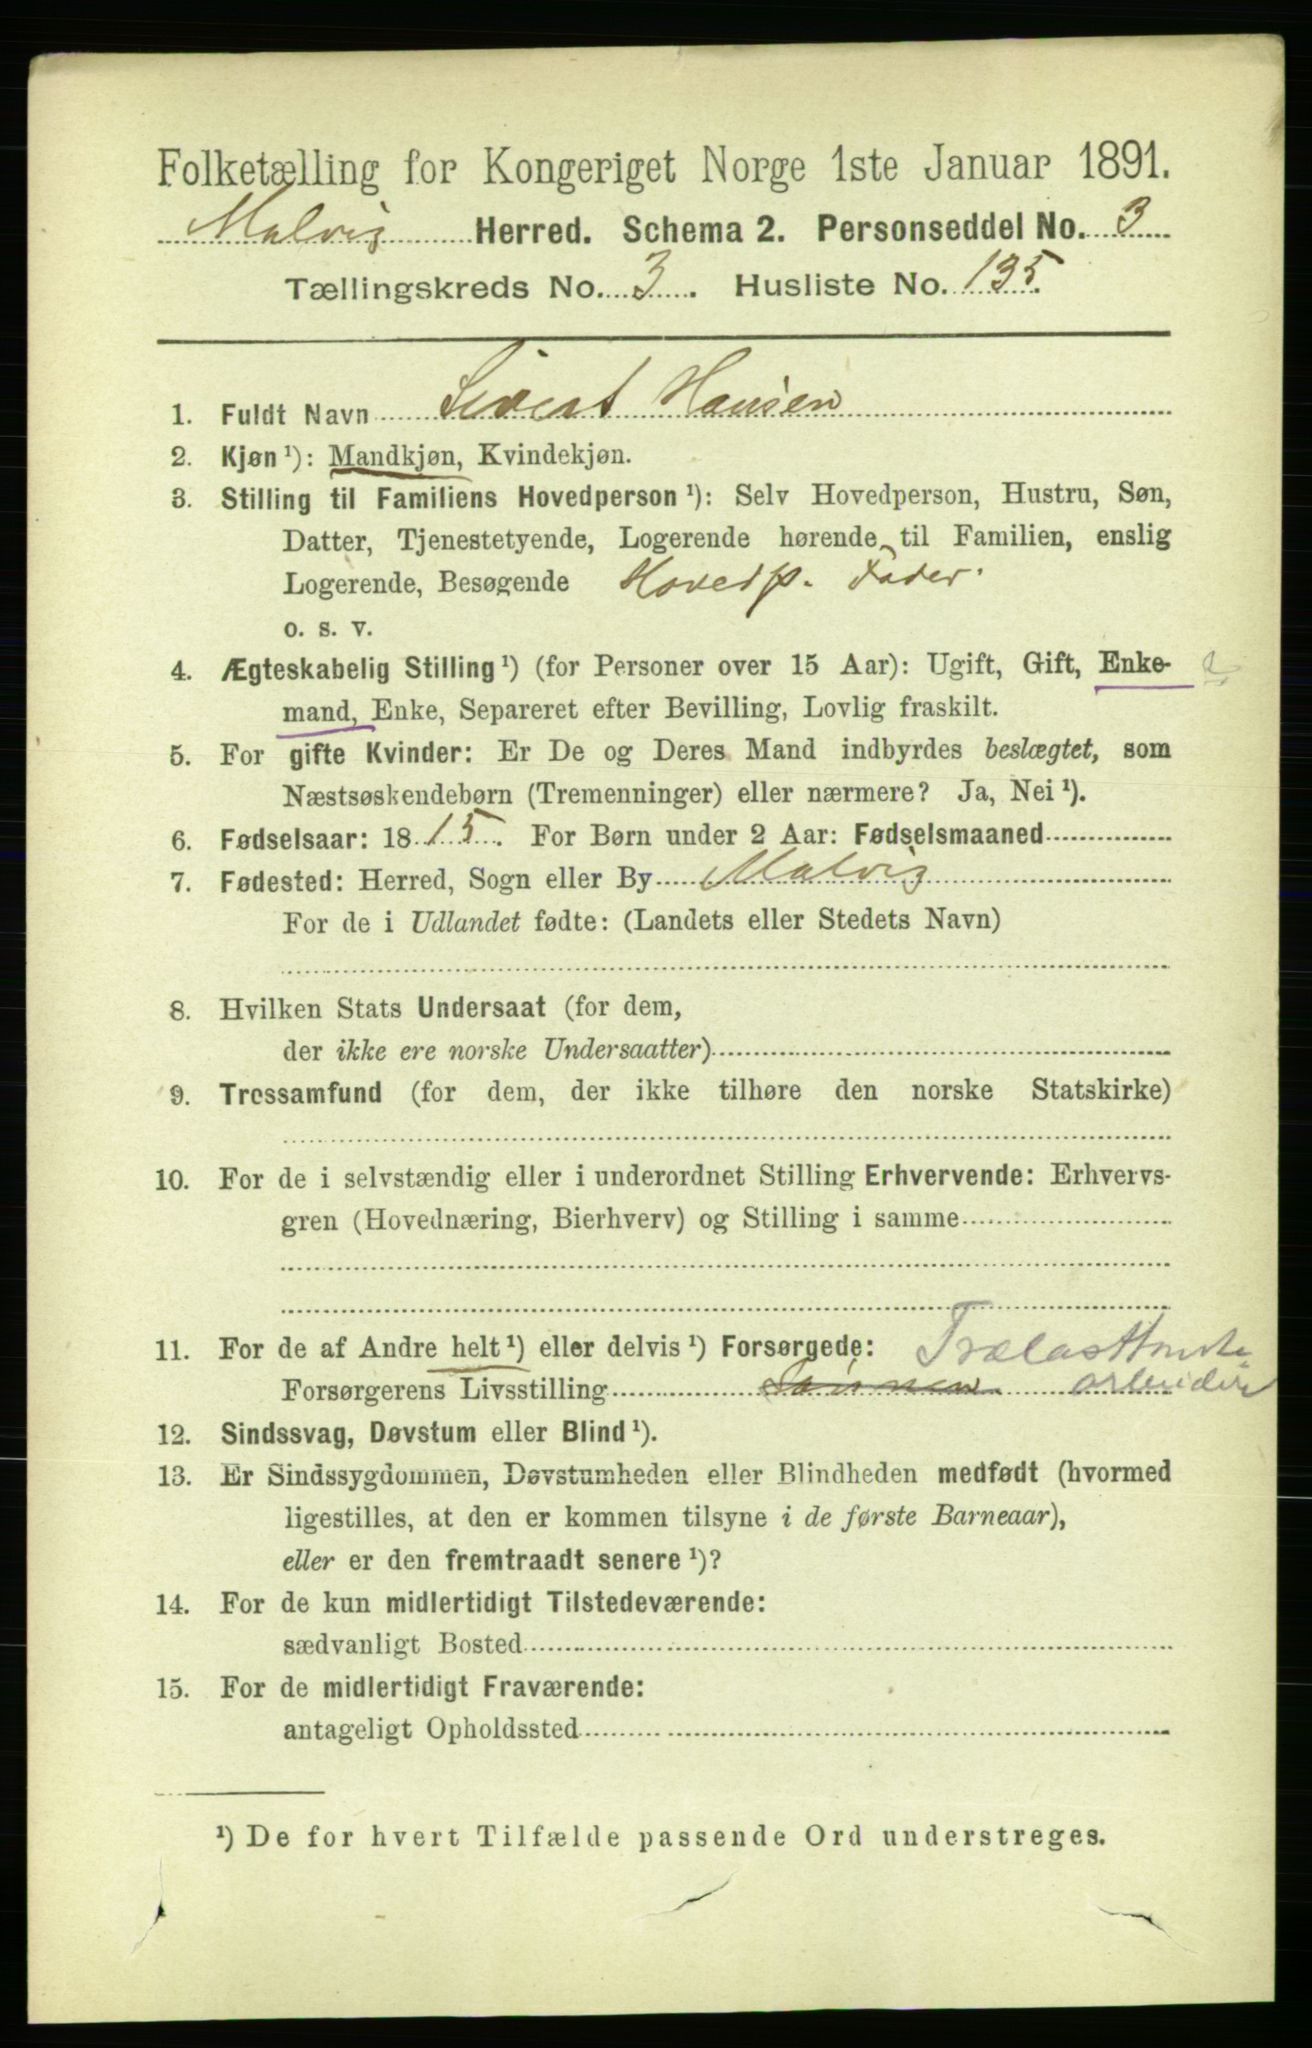 Folketælling for Kongeriget Norge 1ste Januar 1891.
Malvig Herred. Schema 2. Personseddel No. 3
Tællingskreds No. 3. Husliste No. 135.
1. Fuldt Navn Sivert Hansen
2. Kjøn ¹): Mandkjøn, Kvindekjøn.
3. Stilling til Familiens Hovedperson ¹): Selv Hovedperson, Hustru, Søn,
Datter, Tjenestetyende, Logerende hørende til Familien, enslig
Logerende, Besøgende Hovedp. Fader.
o. s. v.
4. Ægteskabelig Stilling ¹) (for Personer over 15 Aar): Ugift, Gift, Enke- e
mand, Enke, Separeret efter Bevilling, Lovlig fraskilt.
5. For gifte Kvinder: Er De og Deres Mand indbyrdes beslægtet, som
Næstsøskendebørn (Tremenninger) eller nærmere? Ja, Nei ¹).
6. Fødselsaar: 1815. For Børn under 2 Aar: Fødselsmaaned
7. Fødested: Herred, Sogn eller By Malvig
For de i Udlandet fødte: (Landets eller Stedets Navn)
8. Hvilken Stats Undersaat (for dem,
der ikke ere norske Undersaatter)
9. Trossamfund (for dem, der ikke tilhøre den norske Statskirke)
10. For de i selvstændig eller i underordnet Stilling Erhvervende: Erhvervs-
gren (Hovednæring, Bierhverv) og Stilling i samme
11. For de af Andre helt ¹) eller delvis ¹) Forsørgede: Trælasttomte
Forsørgerens Livsstilling Sønnen arbeider
12. Sindssvag, Døvstum eller Blind ¹).
13. Er Sindssygdommen, Døvstumheden eller Blindheden medfødt (hvormed
ligestilles, at den er kommen tilsyne i de første Barneaar),
eller er den fremtraadt senere ¹)?
14. For de kun midlertidigt Tilstedeværende:
sædvanligt Bosted
15. For de midlertidigt Fraværende:
antageligt Opholdssted
¹) De for hvert Tilfælde passende Ord understreges.